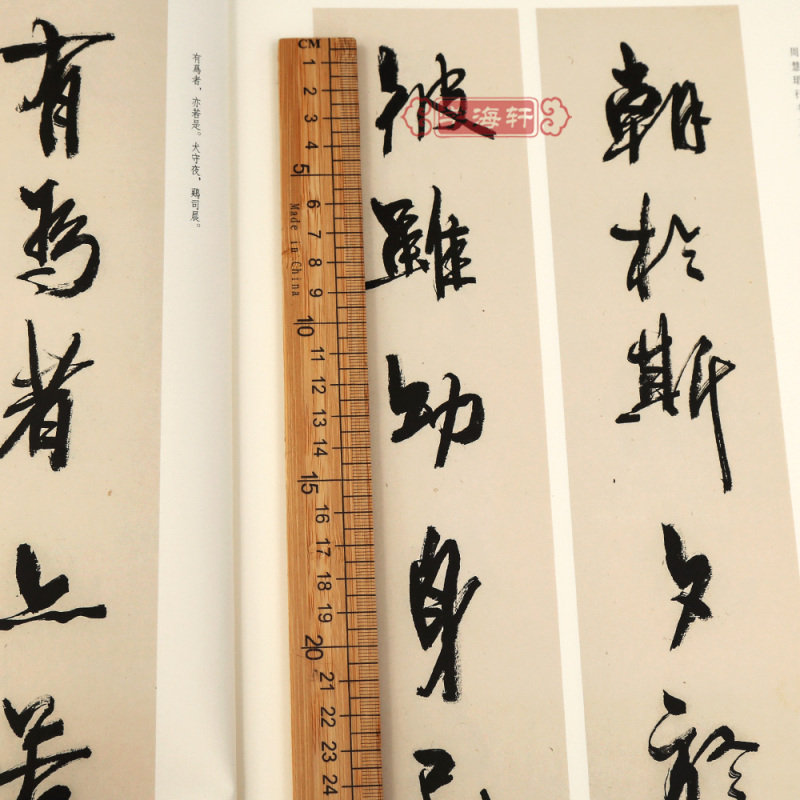 周慧珺行
朝於斯夕於
彼雖幼身已
海轩
CM
1 2 3 4 5 6 7 8 9 10 11 12 13 14 15 16 17 18 19 20 21 22 23 24
Made in China
有爲者，亦若是。犬守夜，鷄司晨。
有爲者亦若